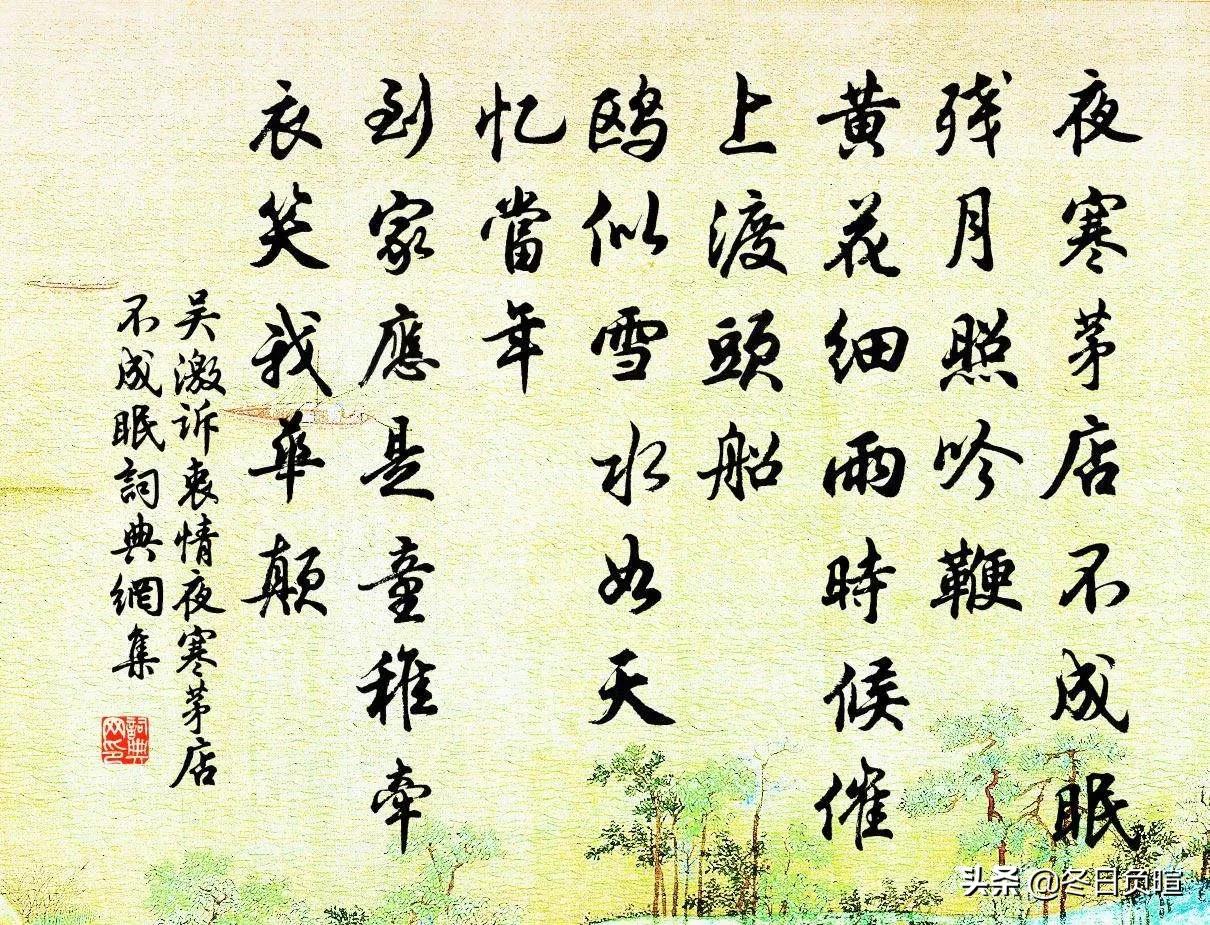 夜寒茅店不成眠
残月照吟鞭
黄花細雨時候催
上渡頭船
鸥似雪水如天
忆當年
到家應是童稚牽
衣笑我華颠
吴激诉衷情夜寒茅店
不成眠詞典網集
詞典网印
头条 @冬日负暄